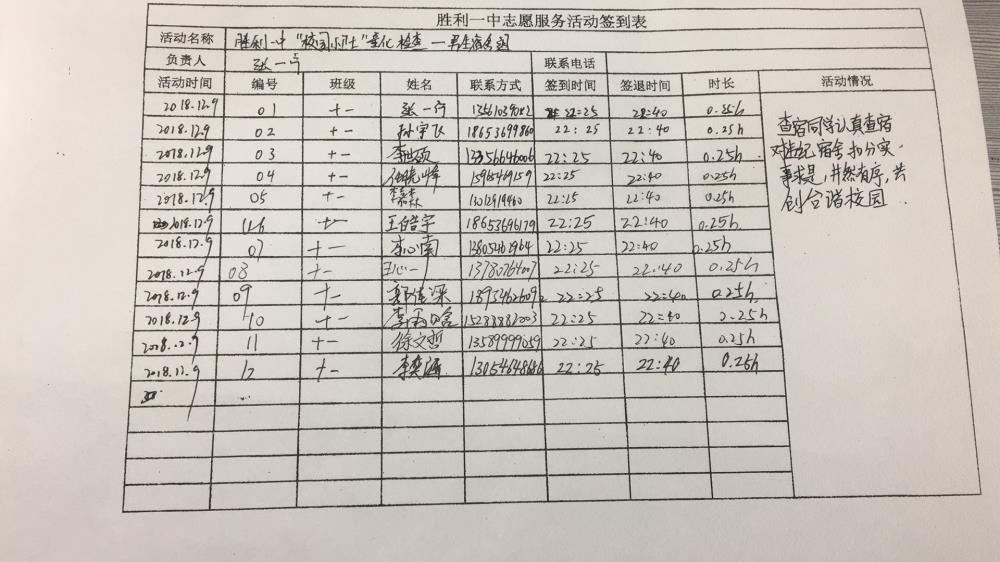 胜利一中志愿服务活动签到表
活动名称 胜利一中"校园小卫士"量化检查—男生宿舍团
负责人 张一宁 联系电话
活动时间 编号 班级 姓名 联系方式 签到时间 签退时间 时长 活动情况
2018.12.9 01 十一 张一宁 22:25 22:40 0.25h
2018.12.9 02 十一 孙宇飞 18653699860 22:25 22:40 0.25h
2018.12.9 03 十一 22:25 22:40 0.25h
2018.12.9 04 十一 22:25 22:40 0.25h
2018.12.9 05 十一 李森 22:25 22:40 0.25h
2018.12.9 十一 王皓宇 18653696179 22:25 22:40 0.25h
2018.12.9 07 十一 李心南 13805461964 22:25 22:40 0.25h
2018.12.9 08 十一 王心一 13780764007 22:25 22:40 0.25h
2018.12.9 09 十一 郭佳深 22:25 22:40 0.25h
2018.12.9 10 十一 22:25 22:40 0.25h
2018.12.9 11 十一 徐文哲 13589999059 22:25 22:40 0.25h
2018.12.9 12 十一 李奕涵 13054648686 22:25 22:40 0.25h
查宿同学认真查宿
对违纪宿舍扣分实
事求是,井然有序,共
创合谐校园.